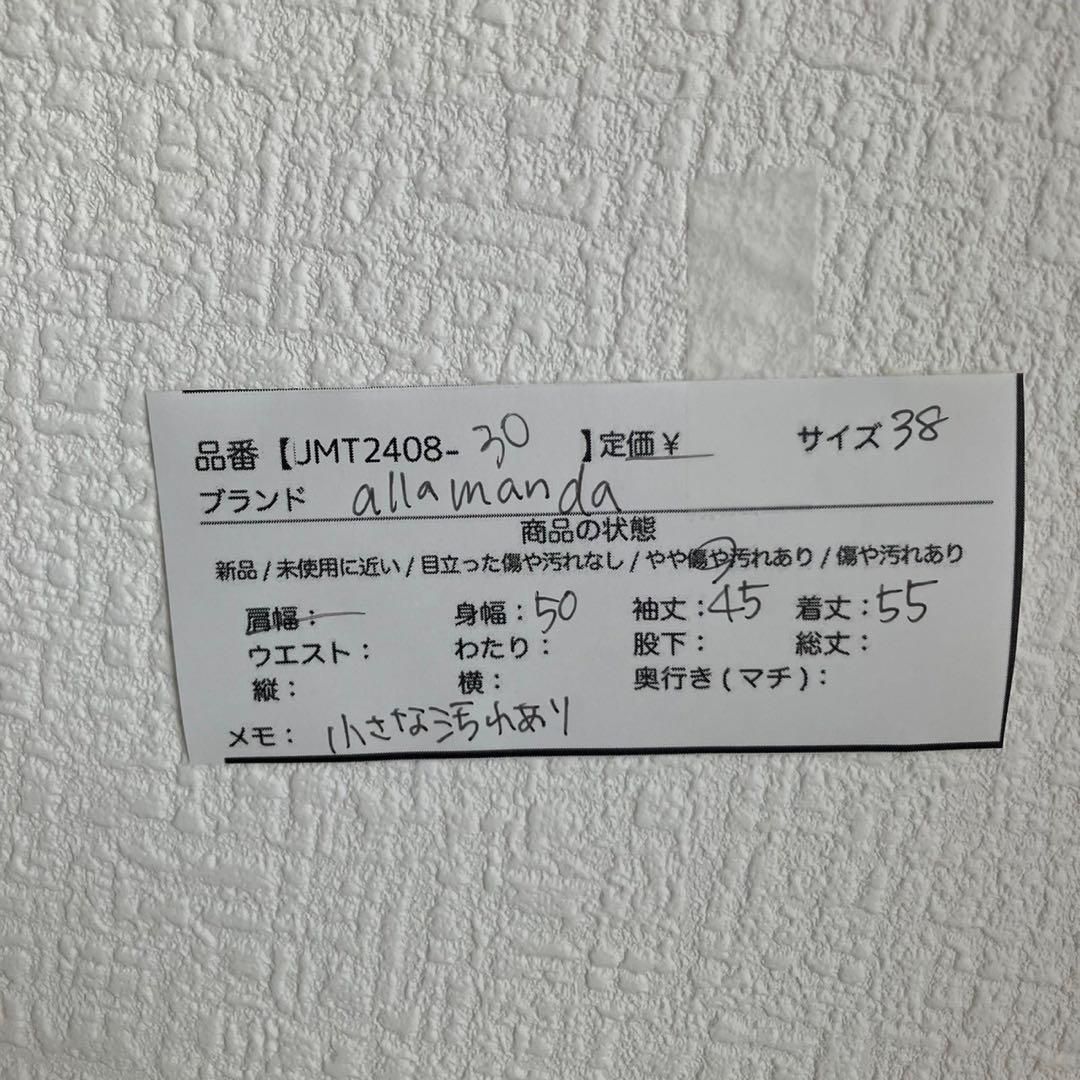 品番【UMT2408-30 】定価¥ サイズ38
ブランド allamanda
商品の状態
新品/未使用に近い/目立った傷や汚れなし/やや傷や汚れあり/傷や汚れあり
肩幅:ー 身幅:50 袖丈:45 着丈:55
ウエスト: わたり: 股下: 総丈:
縦: 横: 奥行き(マチ):
メモ: 小さな汚れあり